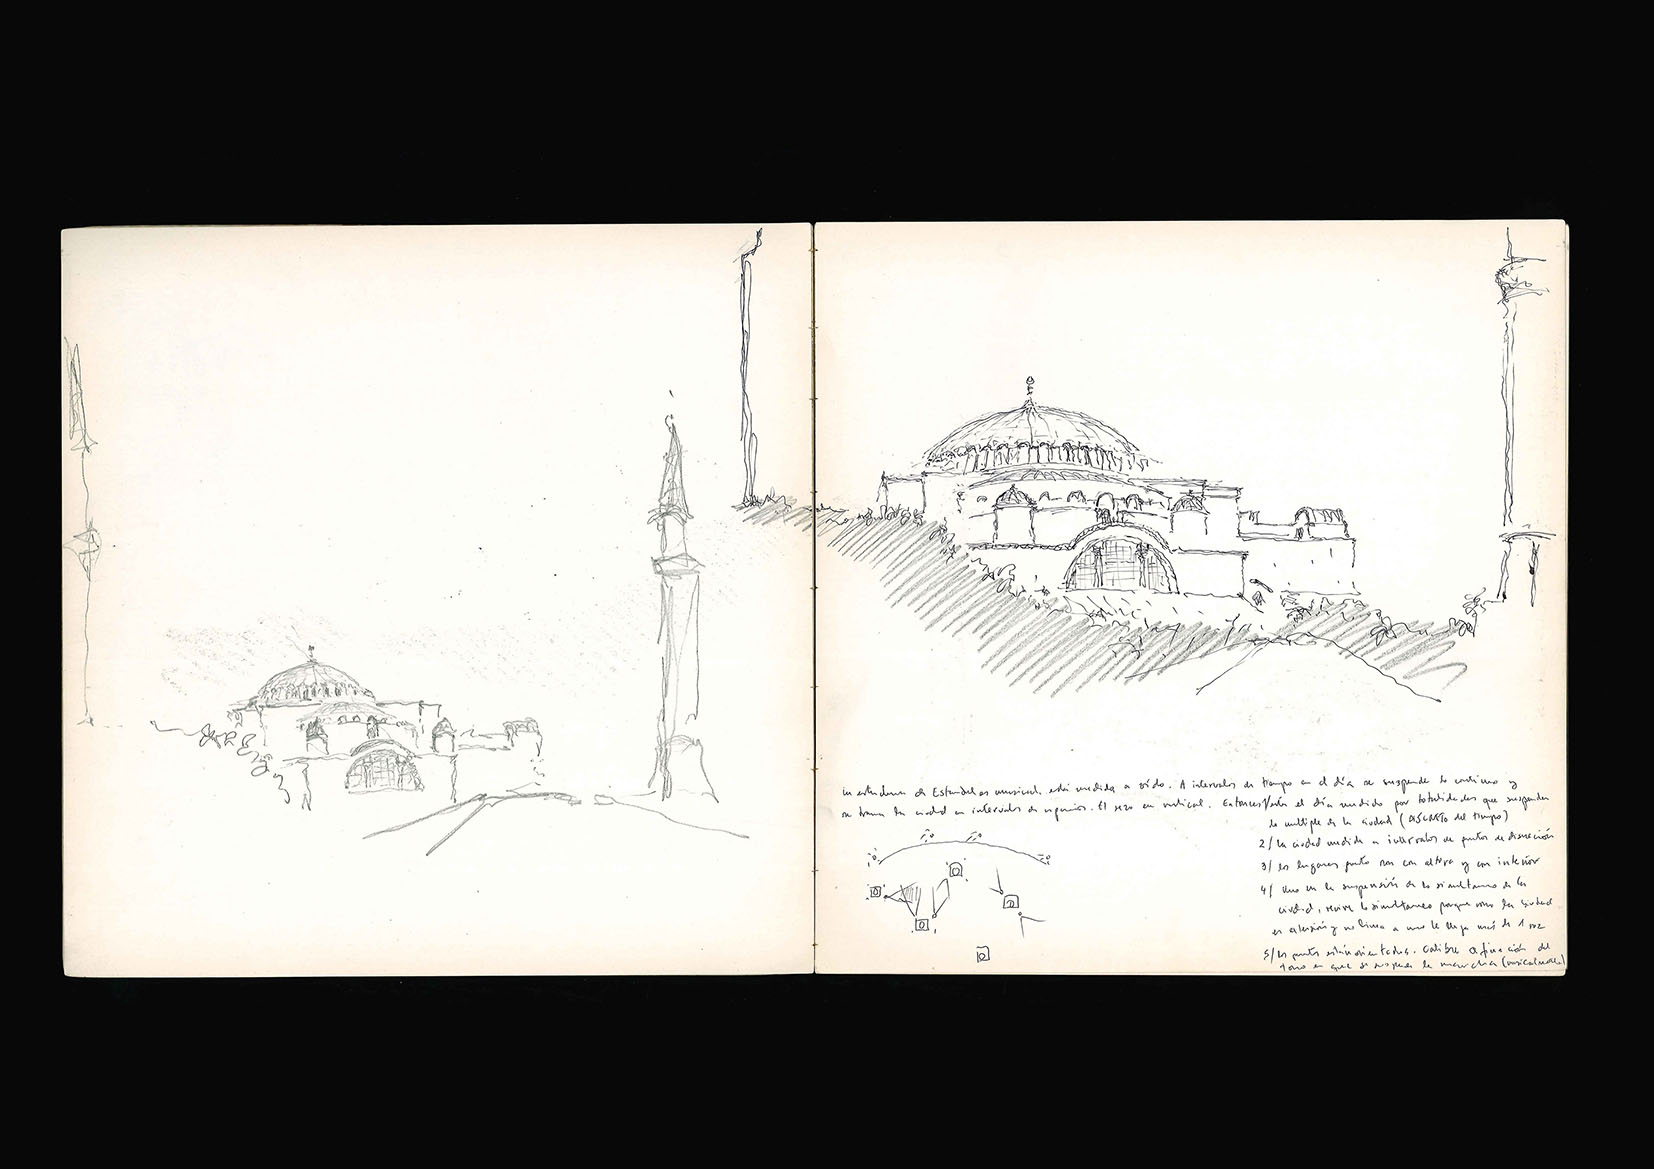 de Estambul es musical, está medida a oído. A intervalos de tiempo en el día se suspende lo continuo y
se trama la ciudad en intervalos de espacios. El rezo en vertical. Entonces 1/ el día medido por totalidades que suspenden
lo múltiple de la ciudad (del tiempo)
2/ la ciudad medida a intervalos de puntos de
3/ los lugares punto son con altura y con interior
4/ en la suspensión de lo simultáneo de la
ciudad, lo simultáneo porque la ciudad
en y a uno le llega más de 1 voz
5/ los puntos están orientados. del
tono en que se la marcha (musicalmente)